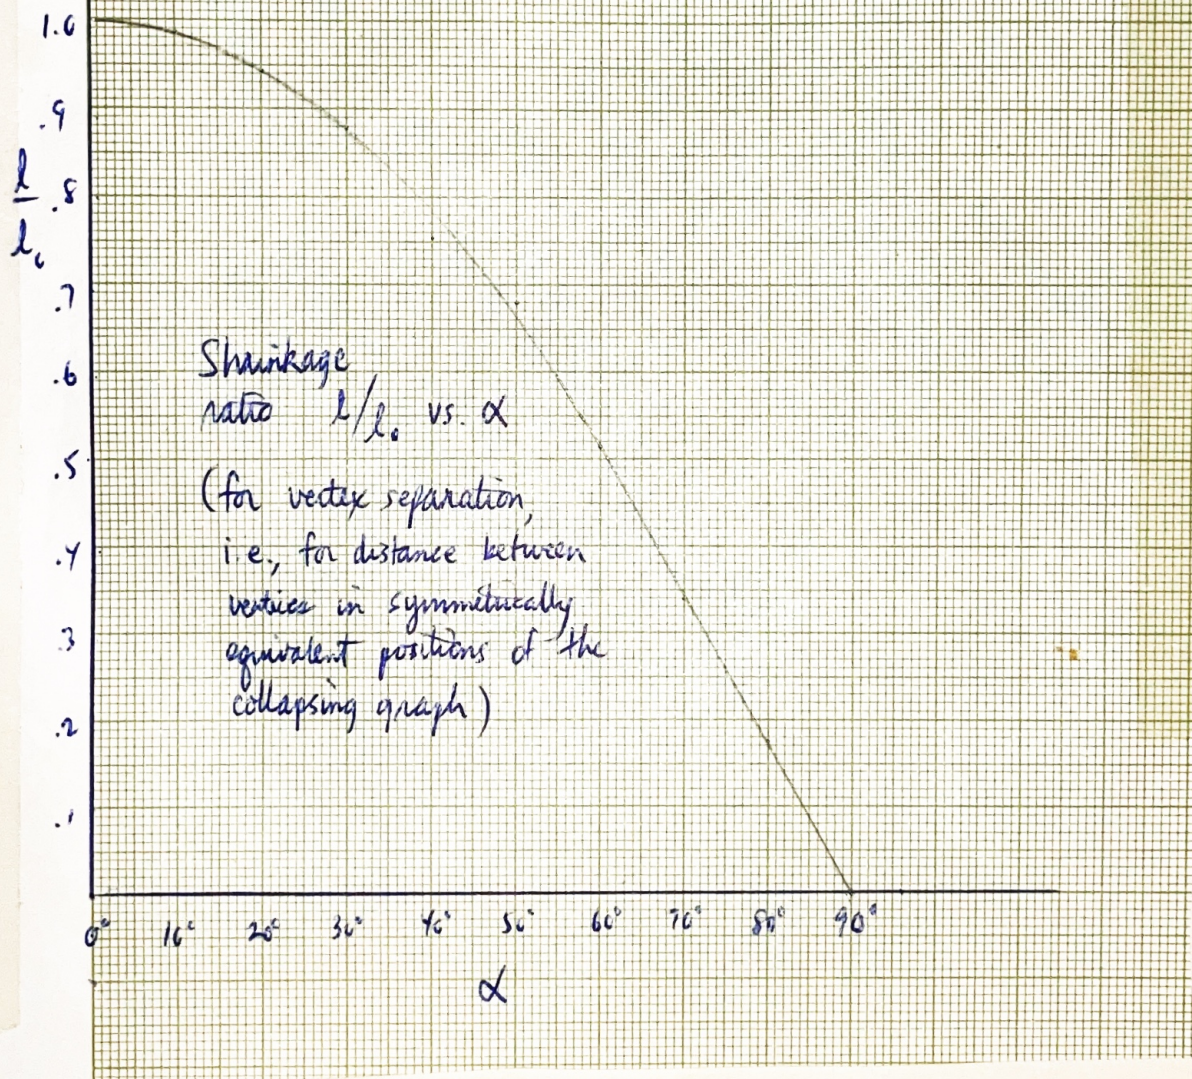 1.0
.9
l/l₀
.8
.7
.6
.5
.4
.3
.2
.1
Shrinkage
ratio l/l₀ vs. α
(for vertex separation,
i.e., for distance between
vertices in symmetrically
equivalent positions of the
collapsing graph)
0° 10° 20° 30° 40° 50° 60° 70° 80° 90°
α